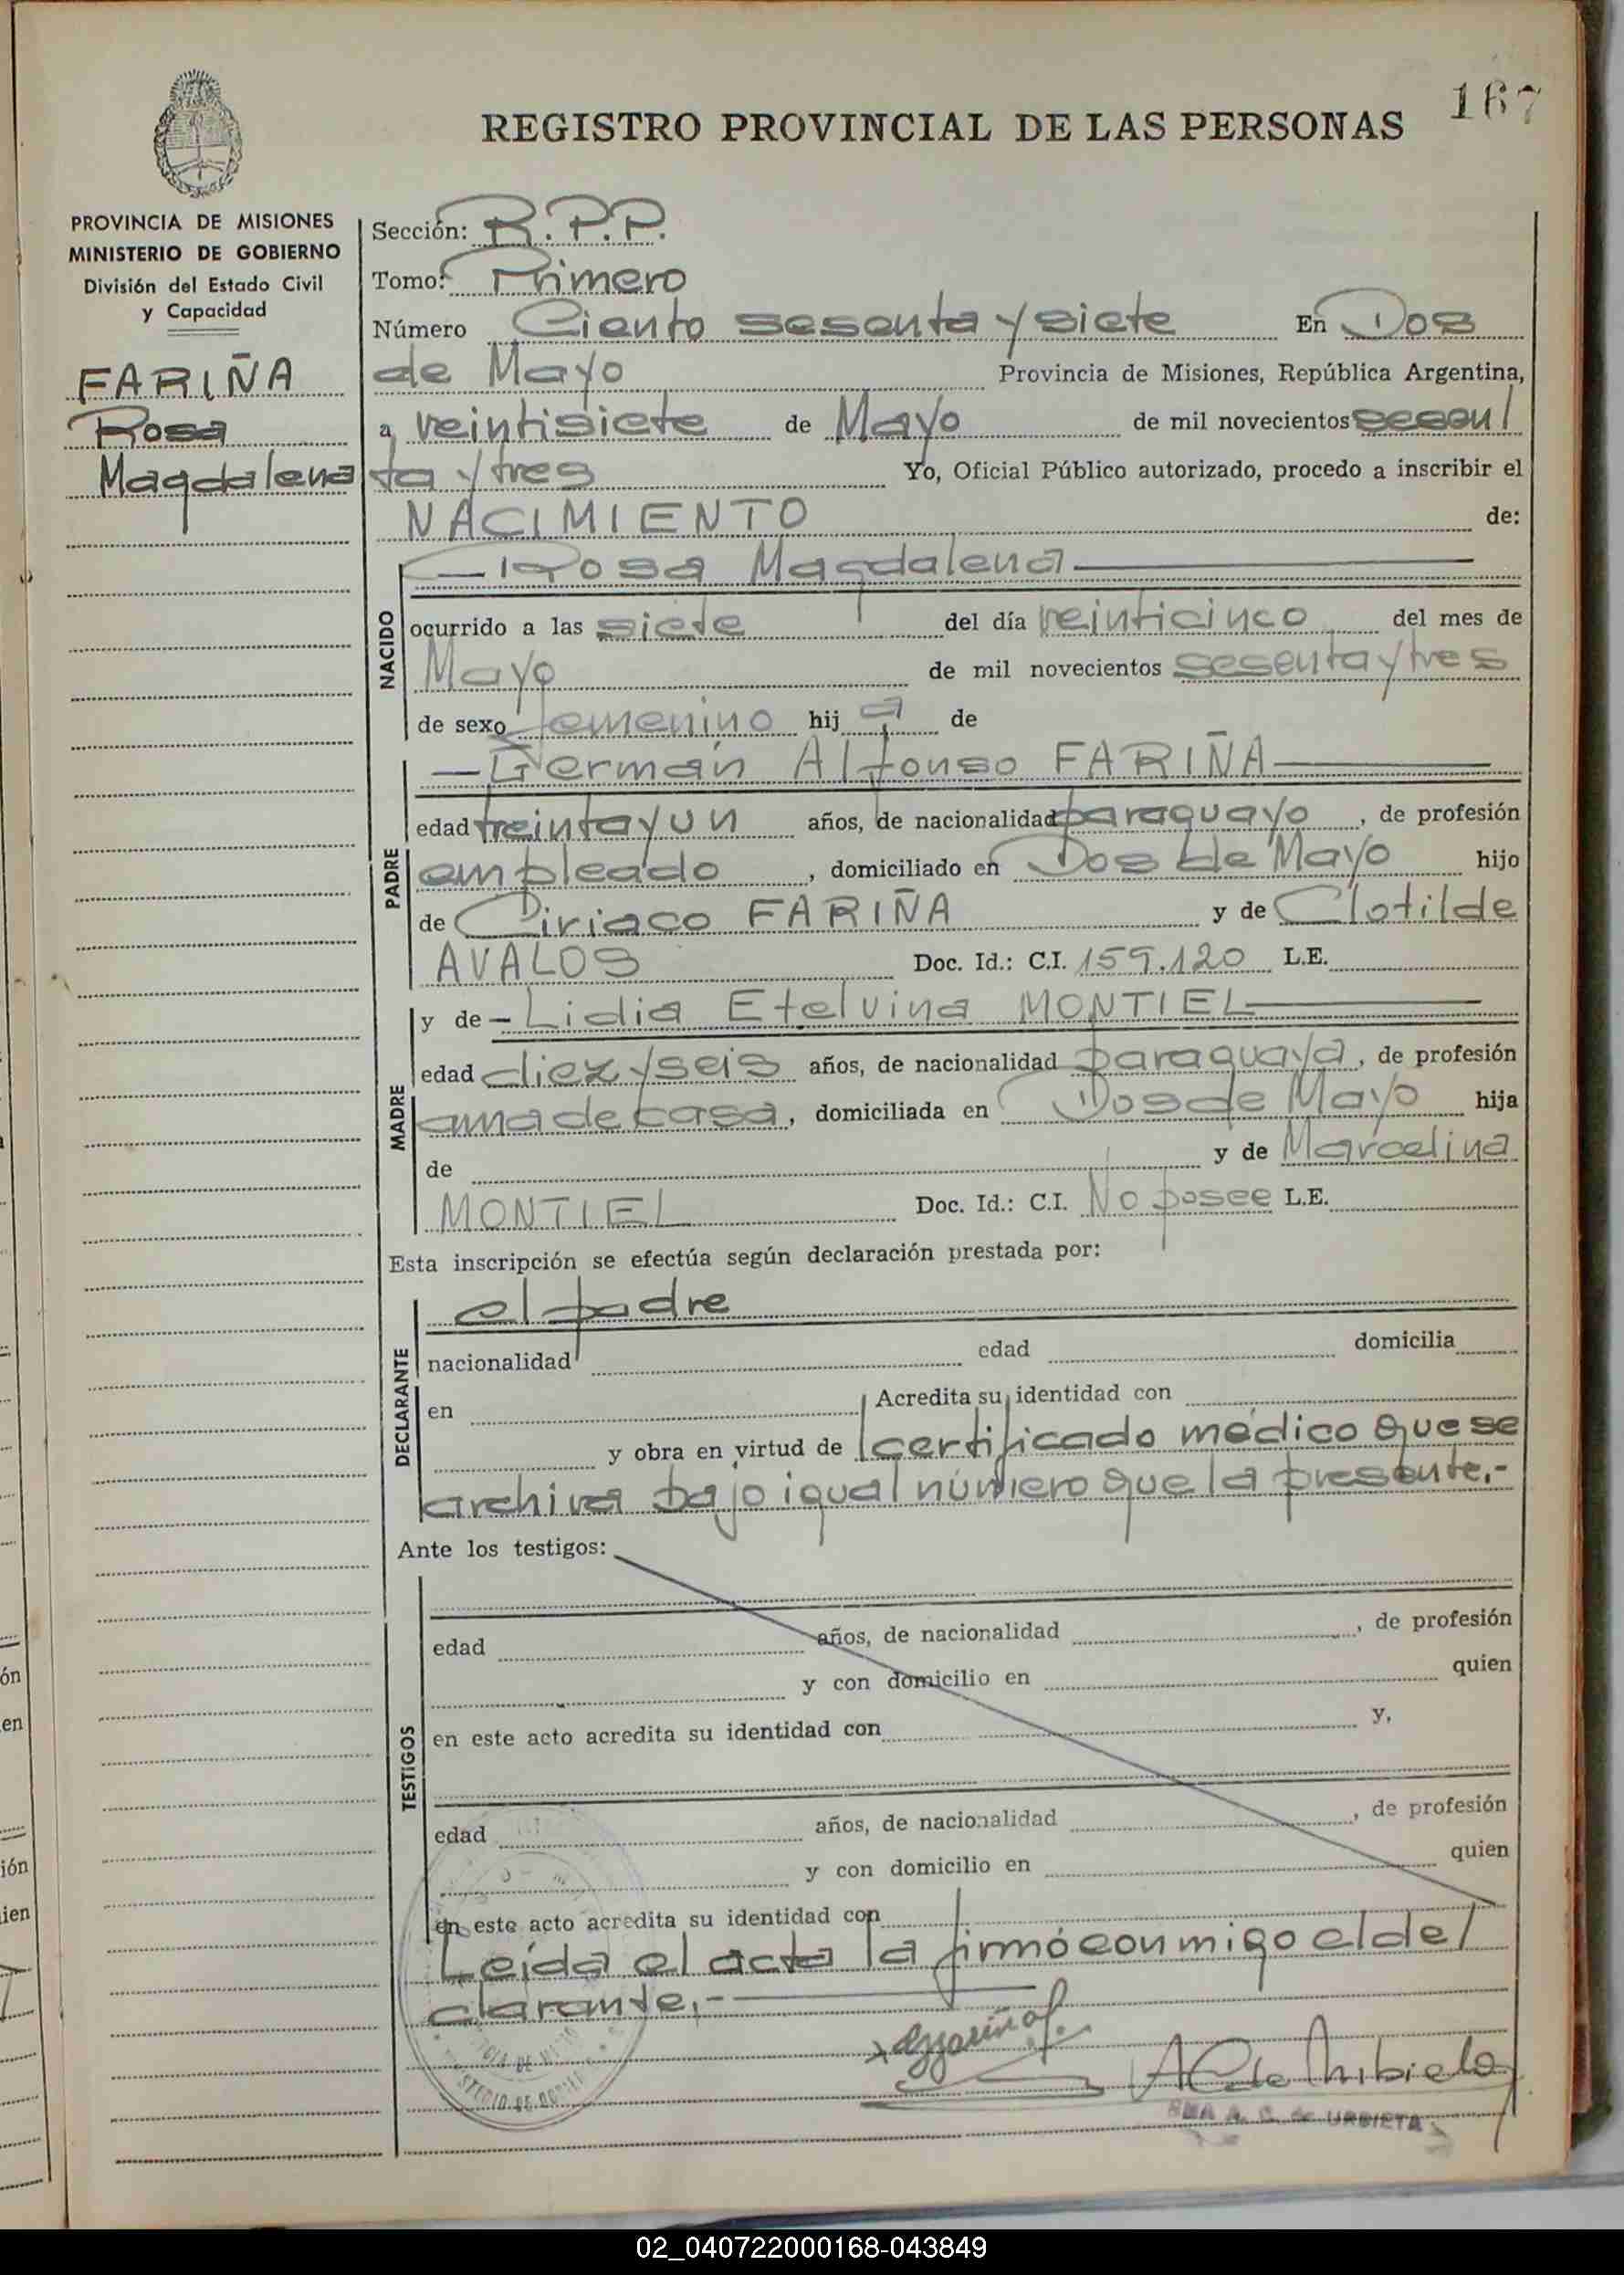 167
REGISTRO PROVINCIAL DE LAS PERSONAS
PROVINCIA DE MISIONES
MINISTERIO DE GOBIERNO
División del Estado Civil
y Capacidad
FARIÑA
Rosa
Magdalena
Sección: R.P.P.
Tomo: Primero
Número Ciento sesenta y siete En Dos
de Mayo Provincia de Misiones, República Argentina,
a veintisiete de Mayo de mil novecientos sesen/
ta y tres Yo, Oficial Público autorizado, procedo a inscribir el
NACIMIENTO de:
NACIDO
— Rosa Magdalena —
ocurrido a las siete del día veinticinco del mes de
Mayo de mil novecientos sesenta y tres
de sexo femenino hij a de
PADRE
— Germán Alfonso FARIÑA —
edad treinta y un años, de nacionalidad paraguayo, de profesión
empleado, domiciliado en Dos de Mayo hijo
de Ciriaco FARIÑA y de Clotilde
AVALOS Doc. Id.: C.I. 159.120 L.E.
MADRE
y de — Lidia Etelvina MONTIEL —
edad diez y seis años, de nacionalidad paraguaya, de profesión
ama de casa, domiciliada en Dos de Mayo hija
de y de Marcelina
MONTIEL Doc. Id.: C.I. No posee L.E.
Esta inscripción se efectúa según declaración prestada por:
DECLARANTE
el padre
nacionalidad edad domicilia
en Acredita su identidad con
y obra en virtud de certificado médico que se
archiva bajo igual número que la presente.-
Ante los testigos:
TESTIGOS
edad años, de nacionalidad , de profesión
y con domicilio en quien
en este acto acredita su identidad con y,
edad años, de nacionalidad , de profesión
y con domicilio en quien
en este acto acredita su identidad con
Leída el acta la firmó conmigo el de/
clarante.-
A C de Urbieta
A. C. de URBIETA
ón
en
ión
ien
02_040722000168-043849